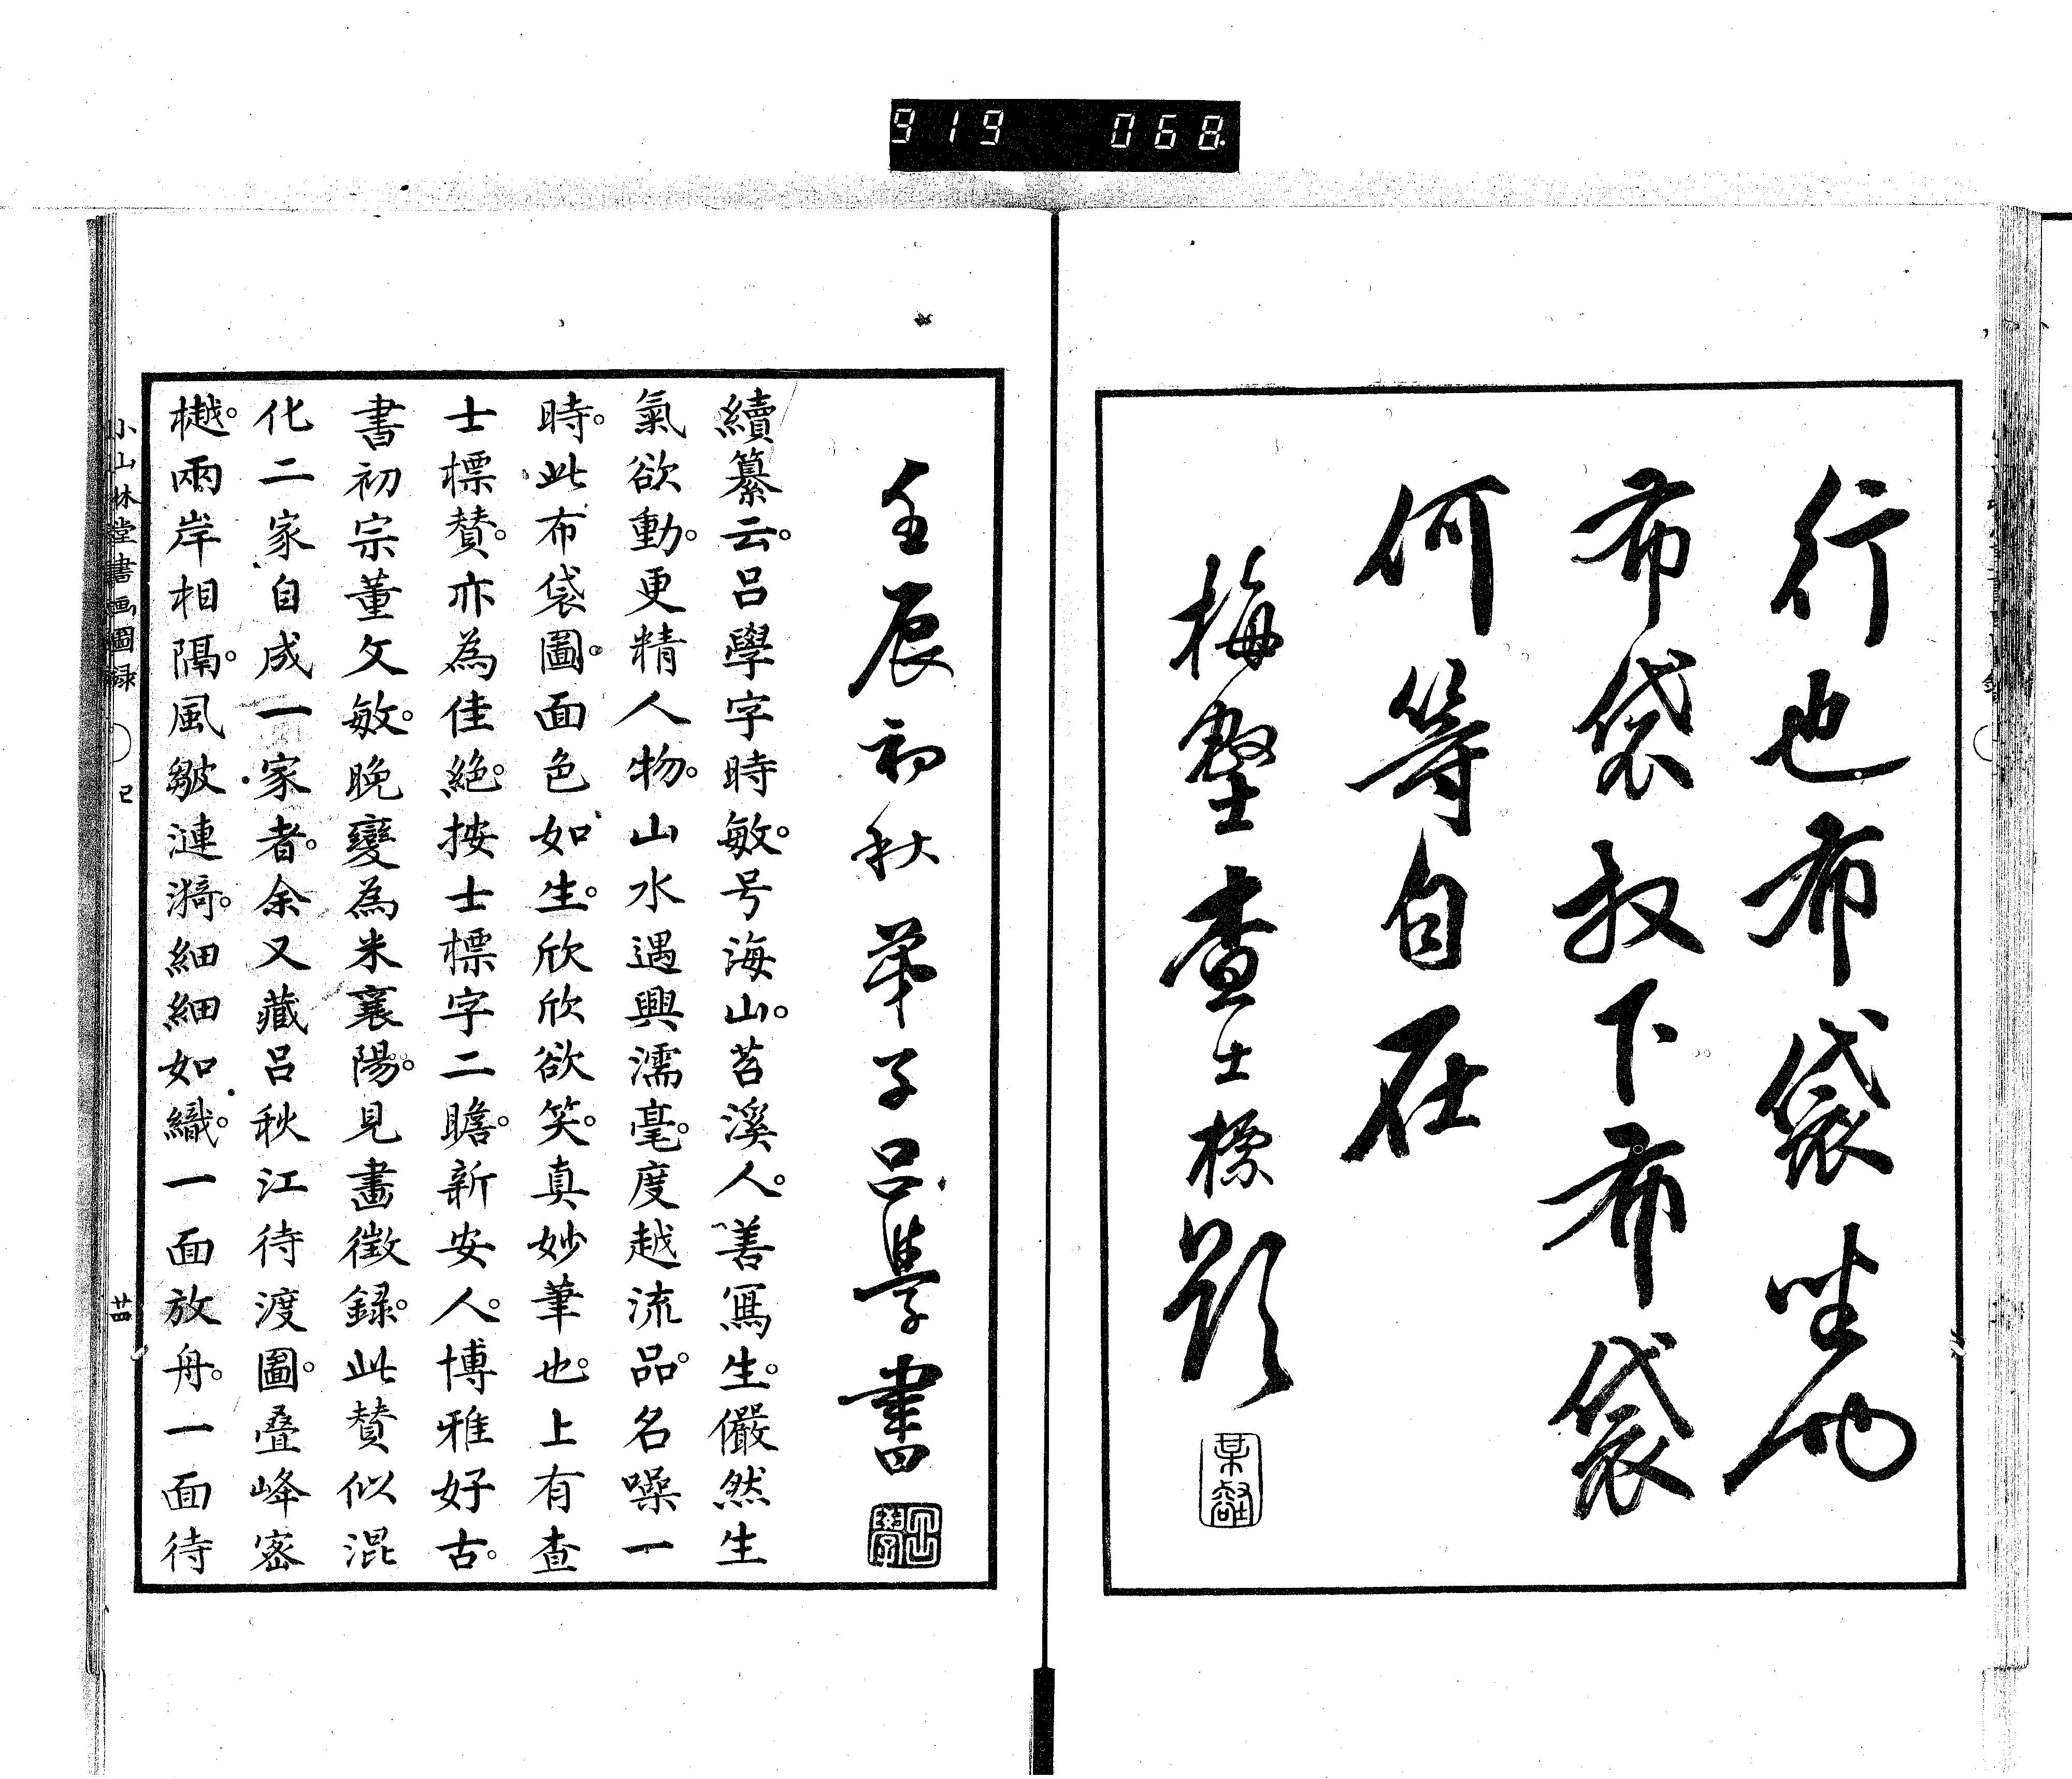 919 068
行也布袋坐也
布袋放下布袋
何等自在
梅壑查士標題
某壑
壬辰初秋華子呂學畫
續纂云。呂學字時敏。号海山。苕溪人。善寫生。儼然生
氣欲動。更精人物。山水遇興濡毫。度越流品。名噪一
時。此布袋圖。面色如生。欣欣欲笑。真妙筆也。上有查
士標贊。亦為佳絶。按士標字二瞻。新安人。博雅好古。
書初宗董文敏。晚變為米襄陽。見畫徵録。此贊似混
化二家自成一家者。余又藏呂秋江待渡圖。疊峰密
樾。兩岸相隔。風皺漣漪。細細如織。一面放舟。一面待
小山林堂書画圖録 〇 巳 廿四